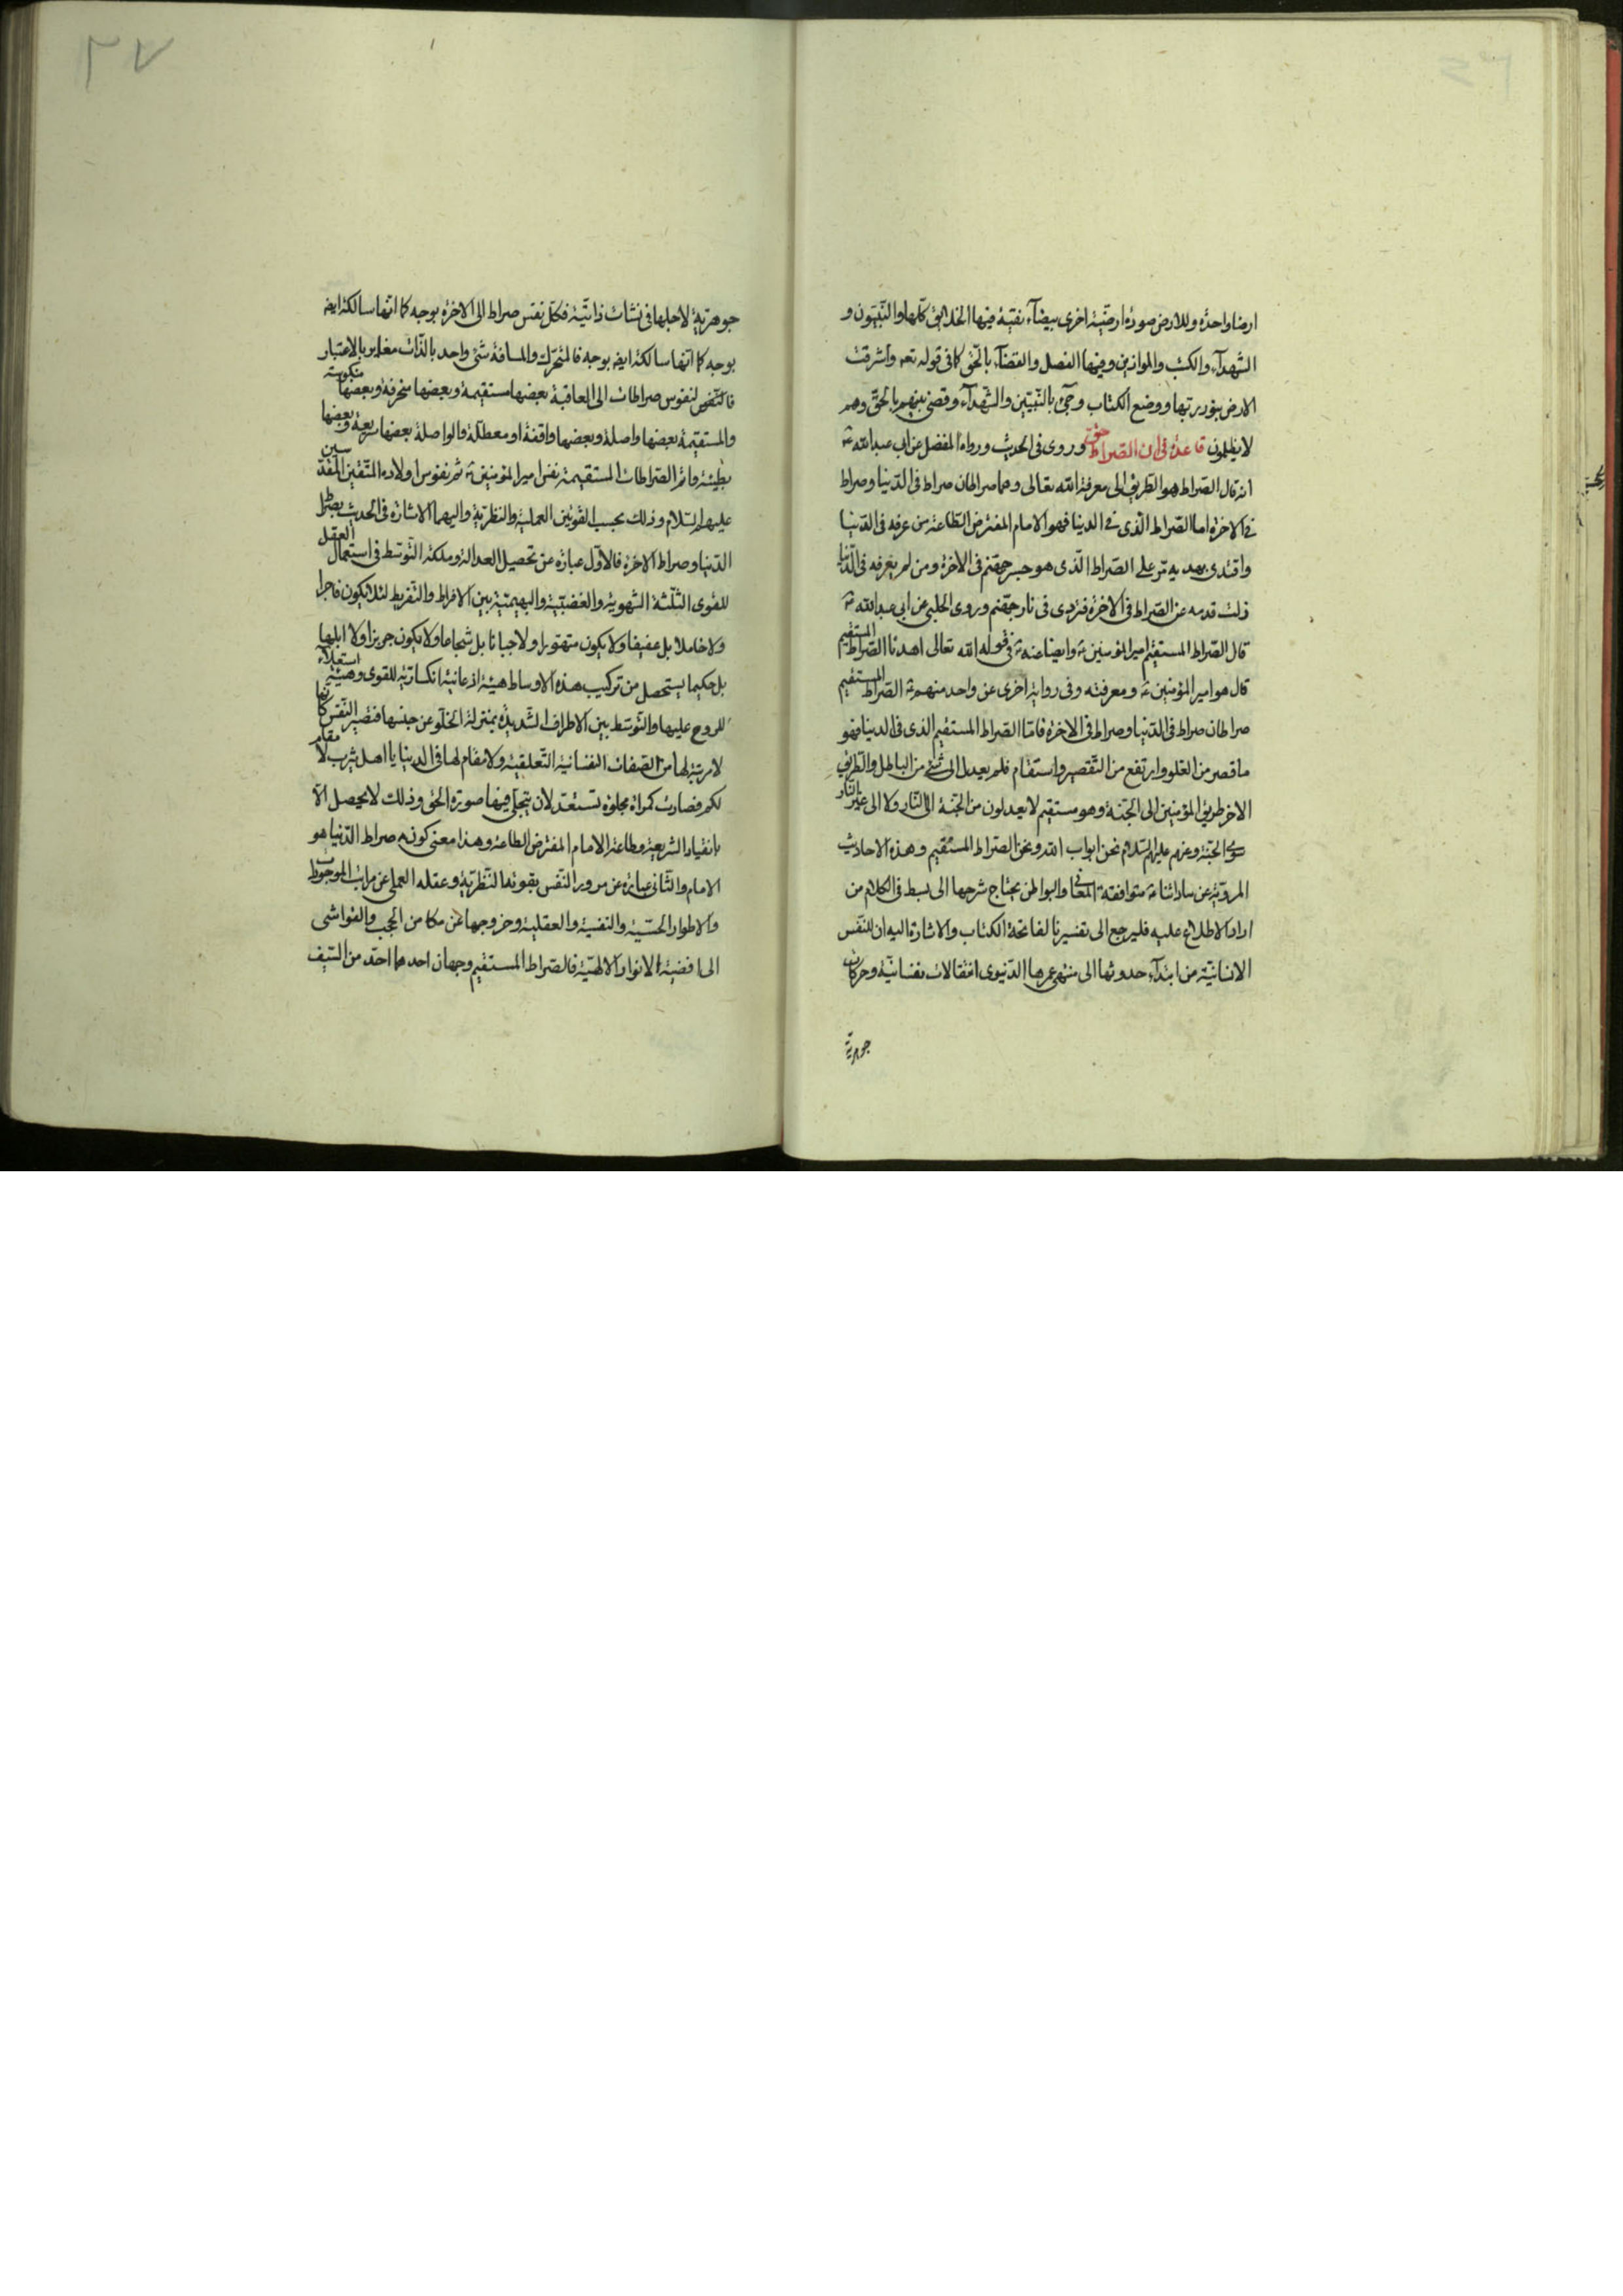 ارضا واحدة وللارض صورة ارضيّة اخرى بيضآء نقيّة فيها الخلايق كلّها والنّبيّون و
الشّهدآء والكتب والموازين وفيها الفصل والقضآء بالحقّ كما في قوله تعه واشرقت
الارض بنور ربّها ووضع الكتاب وجئ بالنّبيّين والشّهدآء وقضى بينهم بالحقّ وهم
لا يظلمون قاعدة فى ان الصّراط حق وروى فى الحديث ورواه المفضل عن ابى عبد الله ع
انه قال الصّراط هو الطّريق الى معرفة الله تعالى وهما صراطان صراط فى الدّنيا وصراط
فى الاخرة اما الصّراط الّذى فى الدنيا فهو الامام المفترض الطّاعة من عرفه فى الدّنيا
واقتدى بهديه مرّ على الصّراط الّذى هو جسر جهنّم فى الاخرة ومن لم يعرفه فى الدّنيا
زلت قدمه عن الصّراط فى الاخرة فتردى فى نار جهنّم وروى الحلبى عن ابى عبد الله ع
قال الصّراط المستقيم امير المؤمنين ع وايضا عنه ع فى قوله الله تعالى اهدنا الصّراط المستقيم
قال هو امير المؤمنين ع ومعرفته وفى رواية اخرى عن واحد منهم ع الصّراط المستقيم
صراطان صراط فى الدّنيا وصراط فى الاخرة فامّا الصّراط المستقيم الذى فى الدنيا فهو
ما قصر من الغلو وارتفع من التّقصير واستقام فلم يعدل الى شئ من الباطل والطّريق
الاخر طريق المؤمنين الى الجنّة وهو مستقيم لا يعدلون من الجنّة الى النّار ولا الى غير النّار
سوى الجنّة وعنهم عليهم السّلام نحن ابواب الله ونحن الصّراط المستقيم وهذه الاحاديث
المرويّة عن ساداتنا ع متوافقة المعانى والبواطن يحتاج شرحها الى بسط فى الكلام من
اراد الاطلاع عليه فليرجع الى تفسيرنا لفاتحة الكتاب والاشارة اليه ان للنّفس
الانسانيّة من ابتدآء حدوثها الى منتهى عمرها الدّنيوى انتقالات نفسانيّة وحركات
جوهريّة
٢٧
جوهريّة لاجلها فى نشات ذاتيّة فكلّ نفس صراط الى الاخرة بوجه كما انّها سالكة ايضه
بوجه كما انّها سالكة ايضه بوجه فالمتحرّك والمسافة شئ واحد بالذّات مغاير بالاعتبار
فالنّفوس لنفوس صراطات الى العاقبة بعضها مستقيمة وبعضها منحرفة وبعضها منكوسة
والمستقيمة بعضها واصلة وبعضها واقفة او معطّلة والواصلة بعضها سريعة وبعضها
بطيئة واتم الصّراطات المستقيمة نفس امير المؤمنين ع ثم نفوس اولاده المتّقين المقدّسين
عليهم السّلام وذلك بحسب القوّتين العمليّة والنظريّة واليهما الاشارة فى الحديث بصراط
الدّنيا وصراط الاخرة فالاوّل عبارة عن تحصيل العدالة وملكة التّوسّط فى استعمال العقل
للقوى الثلّثة الشهويّة والغضبيّة والبهيميّة بين الافراط والتّفريط لئلا يكون فاجرا
ولا خاملا بل عفيفا ولا يكون متهوّرا ولا جبانا بل شجاعا ولا يكون جربزا ولا ابلها
بل حكيما يستحصل من تركيب هذه الاوساط هيئة اذعانية انكساريّة للقوى وهيئة استعلاء
للروح عليها والتّوسّط بين الاطراف الشّديدة بمنزلة الخلّو عن جنسها فتصير النّفس كانّها
لا مرتبة لها من الصّفات النفسانية التّعلقيّة ولا مقام لها فى الدينا يا اهل يثرب لا مقام
لكم فصارت كمرآة مجلوّة تستعدّ لان يتجلى فيها صورة الحق وذلك لا يحصل الّا
بانقياد الشريعة وطاعة الامام المفترض الطاعة وهذا معنى كونه صراط الدّنيا هو
الامام والثّانى عبارة عن مرور النّفس بقوته النّظريّة وعقله العملى عن مراتب الموجودات
والاطوار الحسّيّة والنفسيّة والعقليّة وخروجها عن مكامن الحجب والغواشى
الى افضية الانوار الالهيّة فالصّراط المستقيم وجهان احدهما احدّ من السّيف